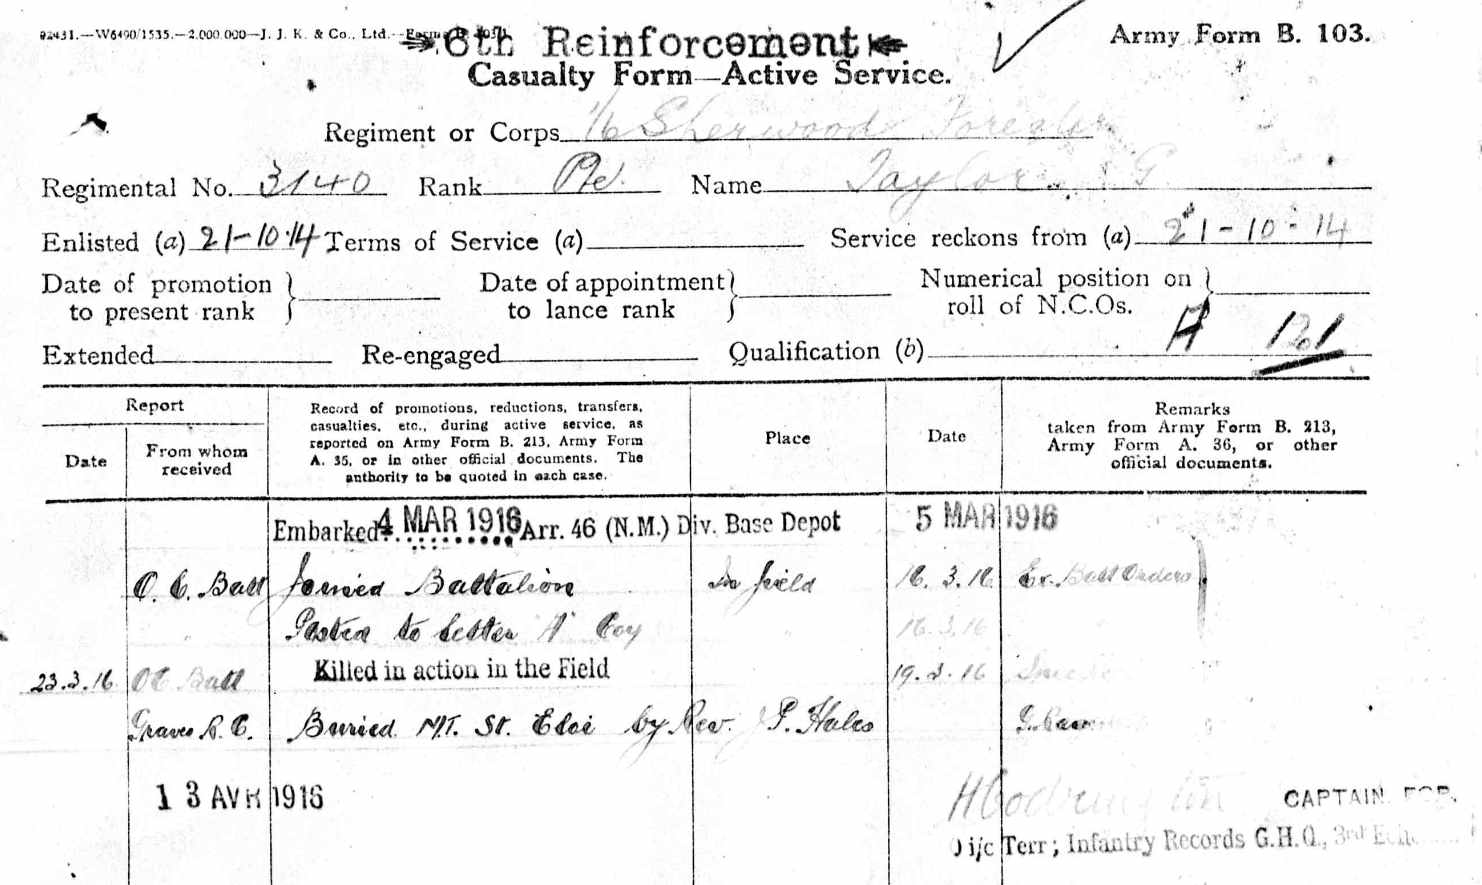 92431.—W6490/1535.—2,000,000—J. J. K. & Co., Ltd.
6th Reinforcement
Army Form B. 103.
Casualty Form—Active Service.
Regiment or Corps 1/6 Sherwood Foresters
Regimental No. 3140 Rank Pte. Name Taylor G
Enlisted (a) 21-10-14 Terms of Service (a) Service reckons from (a) 21-10-14
Date of promotion to present rank } Date of appointment to lance rank } Numerical position on roll of N.C.Os. }
Extended Re-engaged Qualification (b) A 121
Report
Date
From whom received
Record of promotions, reductions, transfers,
casualties, etc., during active service, as
reported on Army Form B. 213, Army Form
A. 36, or in other official documents. The
authority to be quoted in each case.
Place
Date
Remarks
taken from Army Form B. 213,
Army Form A. 36, or other
official documents.
Embarked 4 MAR 1916 Arr. 46 (N.M.) Div. Base Depot 5 MAR 1916
O. C. Batt Joined Battalion In field 16. 3. 16 Ex. Batt Orders
Posted to letter "A" Coy 16.3.16
23.3.16 OC Batt Killed in action in the Field 19.3.16
Graves R. C. Buried Mt. St. Eloi by Rev. J P. Hales
13 AVR 1916
CAPTAIN FOR.
O i/c Terr; Infantry Records G.H.Q., 3rd